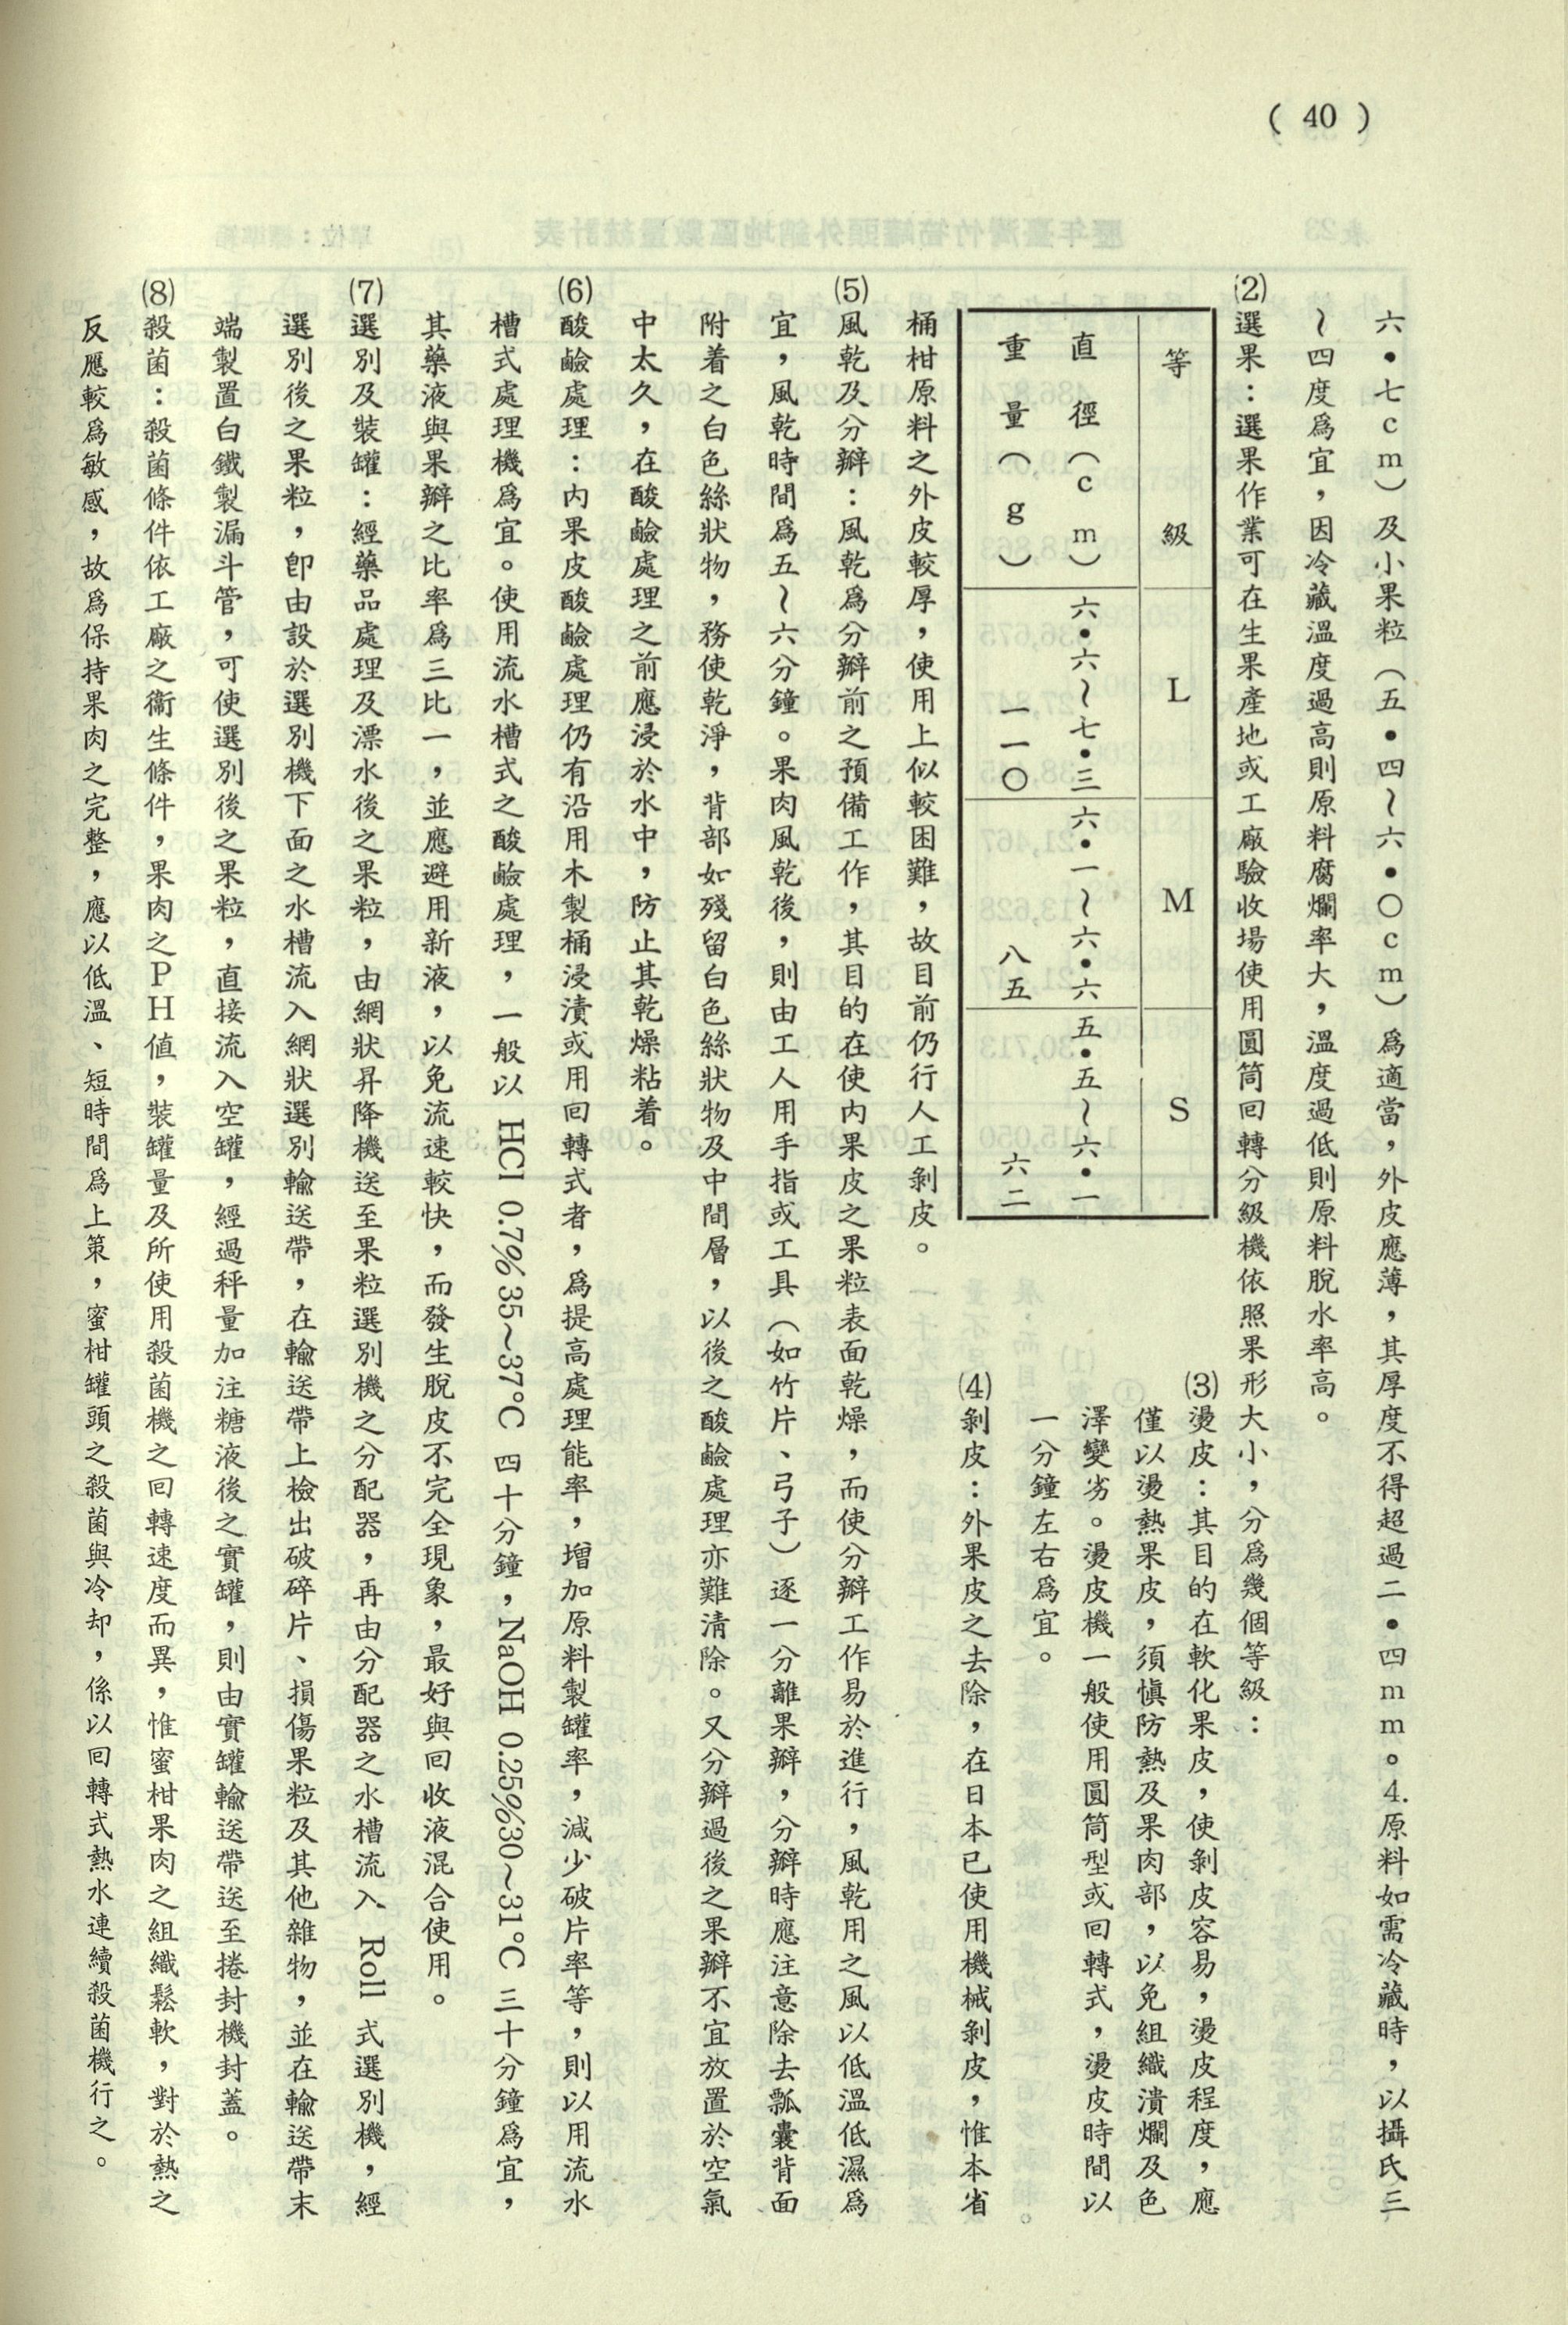 ( 40 )
六・七cm）及小果粒（五・四～六・〇cm）爲適當，外皮應薄，其厚度不得超過二・四mm。4.原料如需冷藏時，以攝氏三
～四度爲宜，因冷藏溫度過高則原料腐爛率大，溫度過低則原料脫水率高。
⑵選果：選果作業可在生果產地或工廠驗收場使用圓筒回轉分級機依照果形大小，分爲幾個等級：
等級 L M S
直徑（cm） 六・六～七・三 六・一～六・六 五・五～六・一
重量（g） 一一〇 八五 六二
⑶燙皮：其目的在軟化果皮，使剝皮容易，燙皮程度，應
僅以燙熱果皮，須愼防熱及果肉部，以免組織潰爛及色
澤變劣。燙皮機一般使用圓筒型或回轉式，燙皮時間以
一分鐘左右爲宜。
⑷剝皮：外果皮之去除，在日本已使用機械剝皮，惟本省
桶柑原料之外皮較厚，使用上似較困難，故目前仍行人工剝皮。
⑸風乾及分瓣：風乾爲分瓣前之預備工作，其目的在使內果皮之果粒表面乾燥，而使分瓣工作易於進行，風乾用之風以低溫低濕爲
宜，風乾時間爲五～六分鐘。果肉風乾後，則由工人用手指或工具（如竹片、弓子）逐一分離果瓣，分瓣時應注意除去瓢囊背面
附着之白色絲狀物，務使乾淨，背部如殘留白色絲狀物及中間層，以後之酸鹼處理亦難淸除。又分瓣過後之果瓣不宜放置於空氣
中太久，在酸鹼處理之前應浸於水中，防止其乾燥粘着。
⑹酸鹼處理：內果皮酸鹼處理仍有沿用木製桶浸漬或用回轉式者，爲提高處理能率，增加原料製罐率，減少破片率等，則以用流水
槽式處理機爲宜。使用流水槽式之酸鹼處理，一般以 HCl 0.7% 35～37°C 四十分鐘，NaOH 0.25%30～31°C 三十分鐘爲宜，
其藥液與果瓣之比率爲三比一，並應避用新液，以免流速較快，而發生脫皮不完全現象，最好與回收液混合使用。
⑺選別及裝罐：經藥品處理及漂水後之果粒，由網狀昇降機送至果粒選別機之分配器，再由分配器之水槽流入 Roll 式選別機，經
選別後之果粒，卽由設於選別機下面之水槽流入網狀選別輸送帶，在輸送帶上檢出破碎片、損傷果粒及其他雜物，並在輸送帶末
端製置白鐵製漏斗管，可使選別後之果粒，直接流入空罐，經過秤量加注糖液後之實罐，則由實罐輸送帶送至捲封機封蓋。
⑻殺菌：殺菌條件依工廠之衞生條件，果肉之PH値，裝罐量及所使用殺菌機之回轉速度而異，惟蜜柑果肉之組織鬆軟，對於熱之
反應較爲敏感，故爲保持果肉之完整，應以低溫、短時間爲上策，蜜柑罐頭之殺菌與冷却，係以回轉式熱水連續殺菌機行之。